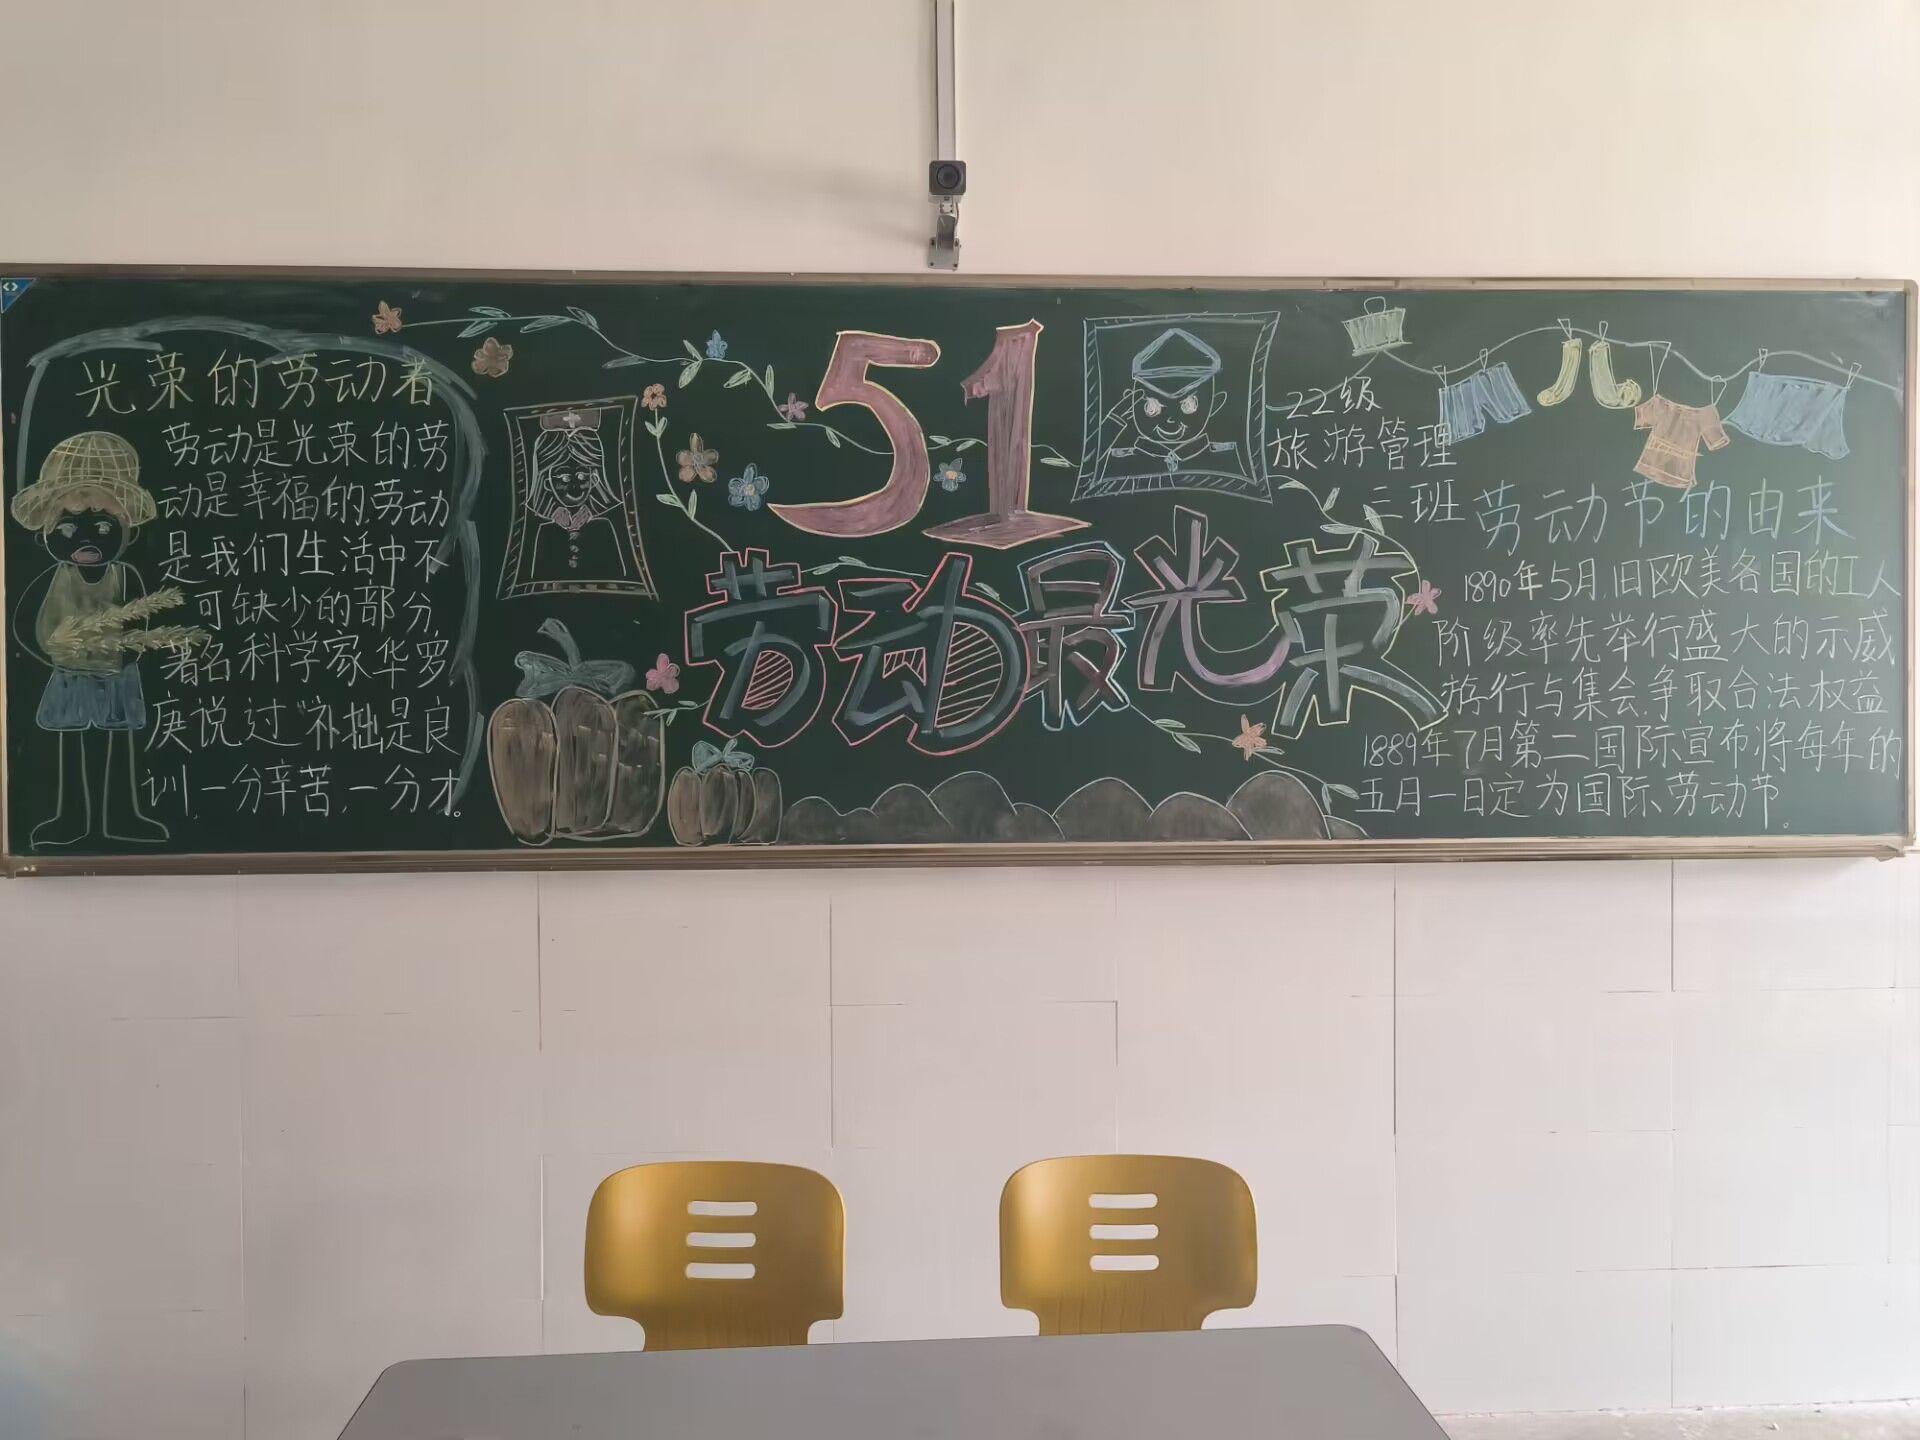 光荣的劳动者
劳动是光荣的,劳
动是幸福的,劳动
是我们生活中不
可缺少的部分
著名科学家华罗
庚说过“补拙是良
训,一分辛苦,一分才。
51
劳动最光荣
22级
旅游管理
三班
劳动节的由来
1890年5月,旧欧美各国的工人
阶级率先举行盛大的示威
游行与集会,争取合法权益
1889年7月第二国际宣布将每年的
五月一日定为国际劳动节。